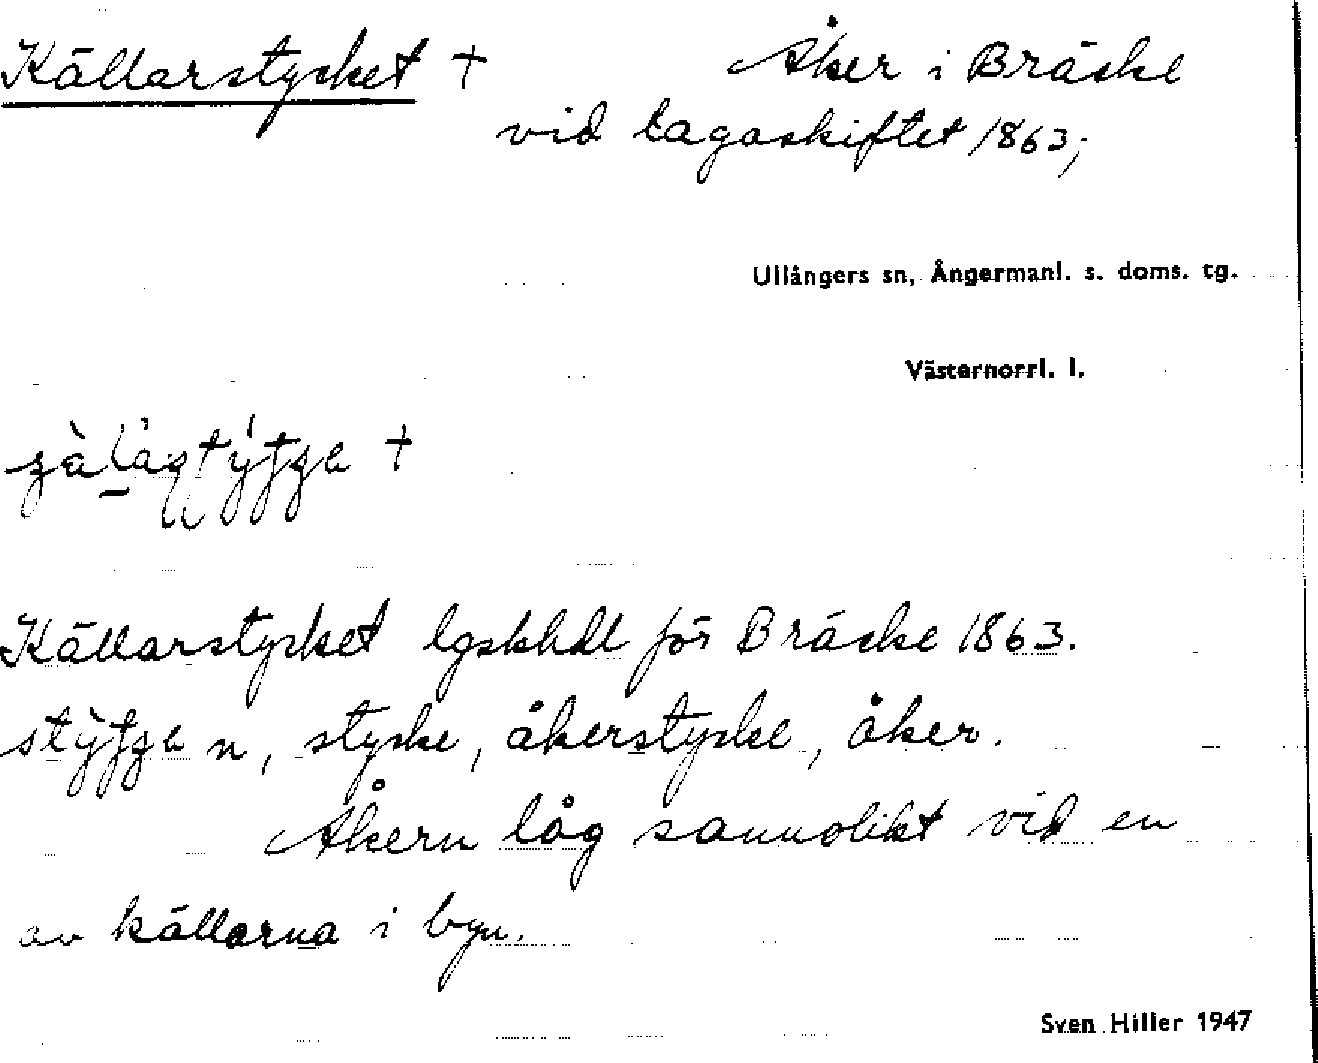 Källarstycket † Åker i Bräcke
vid lagaskiftet 1863;
Ullångers sn, Ångermanl. s. doms. tg.
Västernorrl. l.
†
Källarstycket lgskhdl för Bräcke 1863.
n, stycke, åkerstycke, åker.
Åkern låg sannolikt vid en
av källarna i byn.
Sven Hiller 1947